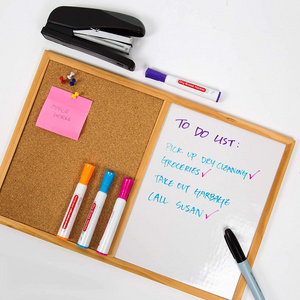 TO DO LIST:
PICK UP DRY CLEANING ✓
GROCERIES ✓
TAKE OUT GARBAGE
CALL SUSAN ✓